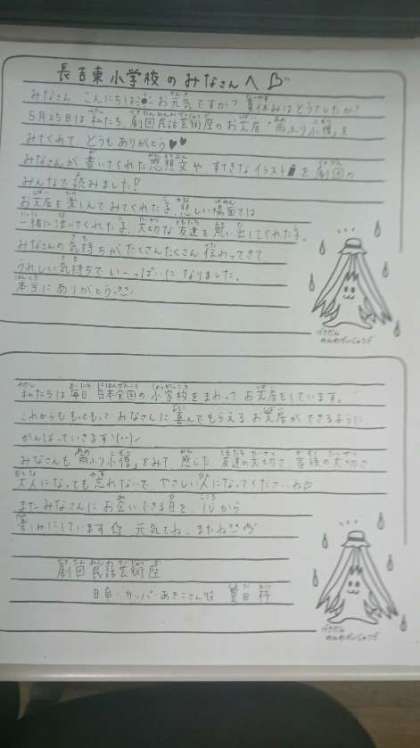 長吉東小学校のみなさんへ♡
みなさん こんにちは お元気ですか? 夏休みはどうでしたか?
5月25日は私たち 劇団民話芸術座のお芝居「雨ふり小僧」を
みてくれて どうもありがとう♥♥
みなさんが書いてくれた感想文や すてきなイラストを劇団の
みんなで読みました!
お芝居を楽しんでみてくれたり、悲しい場面では
一緒に泣いてくれたり、大切な友達を思い出してくれたり、
みなさんの気持ちがたくさんたくさん伝わってきて
うれしい気持ちでいーっぱいになりました。
本当にありがとう
げきだん
みんわげいじゅつざ
私たちは毎日 日本全国の小学校をまわって お芝居をしています。
これからももっともっと みなさんに喜んでもらえるお芝居ができるように
がんばっていきます!
みなさんも「雨ふり小僧」をみて、感じた 友達の大切さ 家族の大切さ
大人になっても忘れないで やさしい人になってくださいね♡
またみなさんにお会いできる日を 心から
楽しみにしています☆ 元気でね、またね
劇団民話芸術座
げきだん
みんわげいじゅつざ